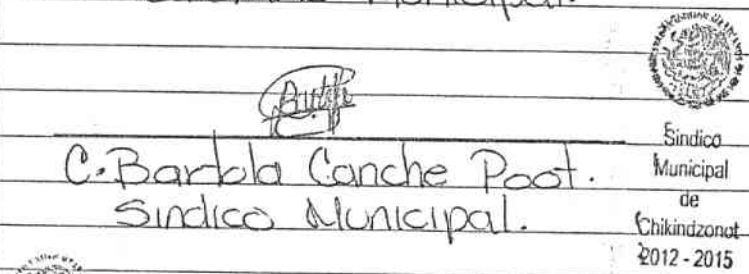 Municipal.
C. Bartola Canche Poot.
Sindico Municipal.
Sindico
Municipal
de
Chikindzonot
2012 - 2015